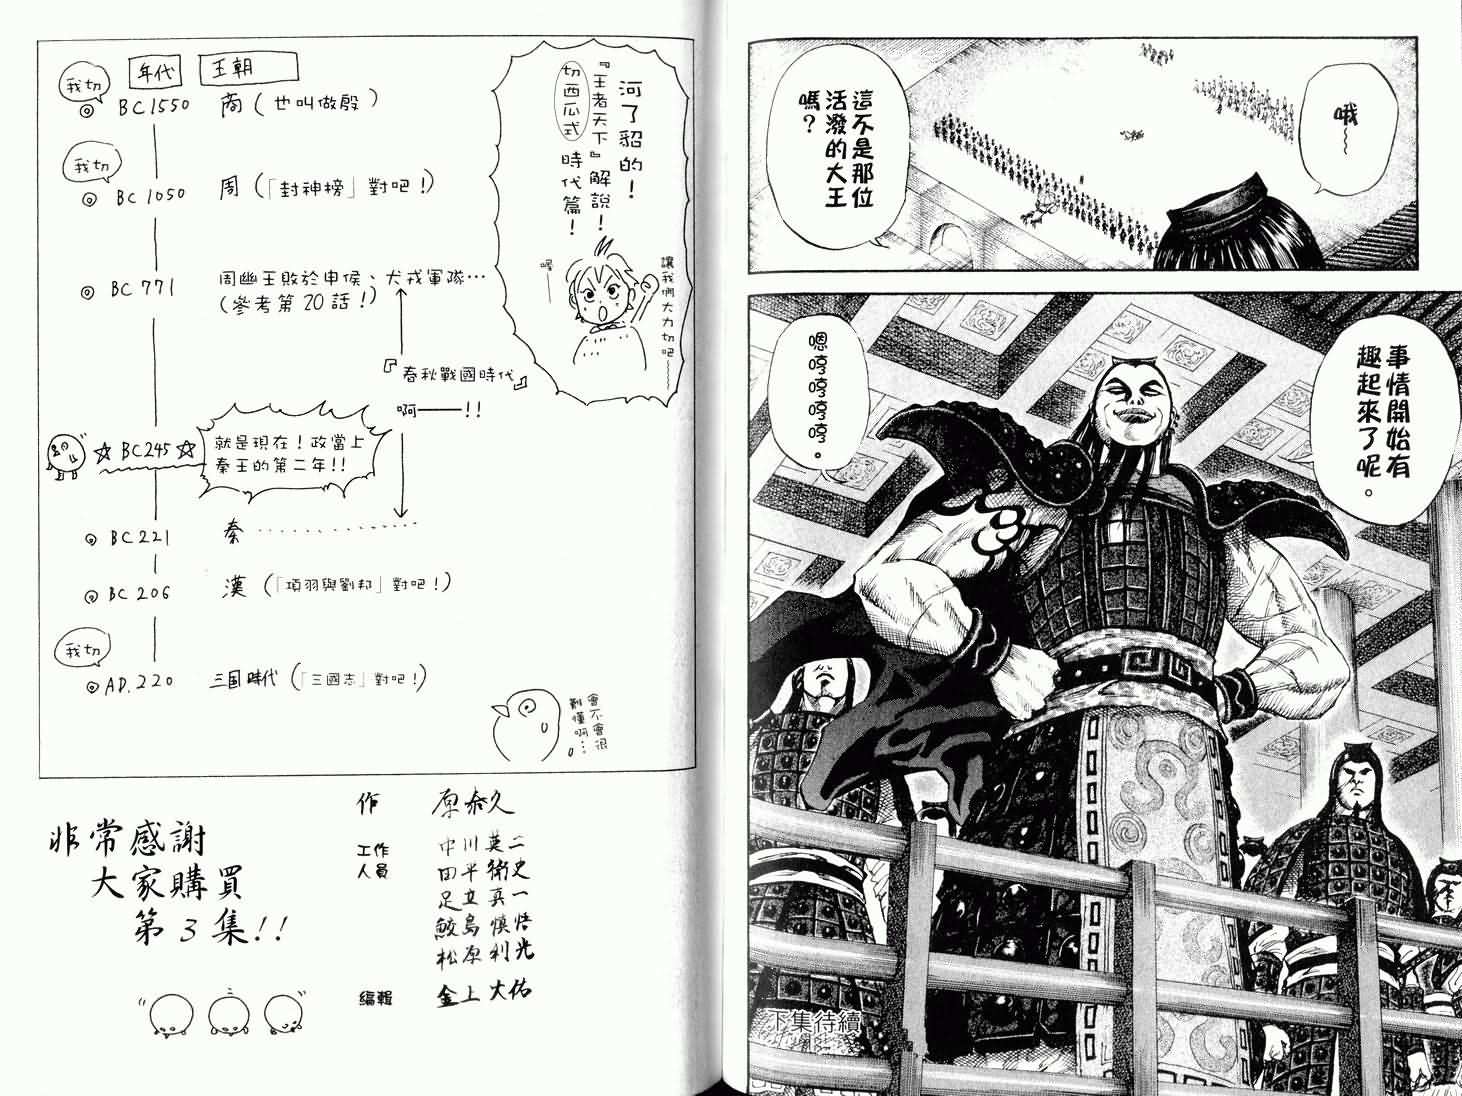 哦~
這不是那位
活潑的大王
嗎？
事情開始有
趣起來了呢。
嗯哼哼哼哼。
下集待續
河了貂的！
『王者天下』解說！
切西瓜式 時代篇！
讓我們大力切吧~~
喔—
年代
王朝
我切
◎ BC 1550 商（也叫做殷）
我切
◎ BC 1050 周（「封神榜」對吧！）
◎ BC 771 周幽王敗於申侯、犬戎軍隊…
（參考第20話！）
『春秋戰國時代』
啊——!!
☆ BC245 ☆
就是現在！政當上
秦王的第二年!!
◎ BC 221 秦
◎ BC 206 漢（「項羽與劉邦」對吧！）
我切
◎ AD. 220 三国時代（「三國志」對吧！）
會不會很
難懂啊…
非常感謝
大家購買
第3集!!
作 原泰久
工作
人員
中川英二
田平衛史
足立真一
鮫島慎悟
松原利光
編輯 金上大佑